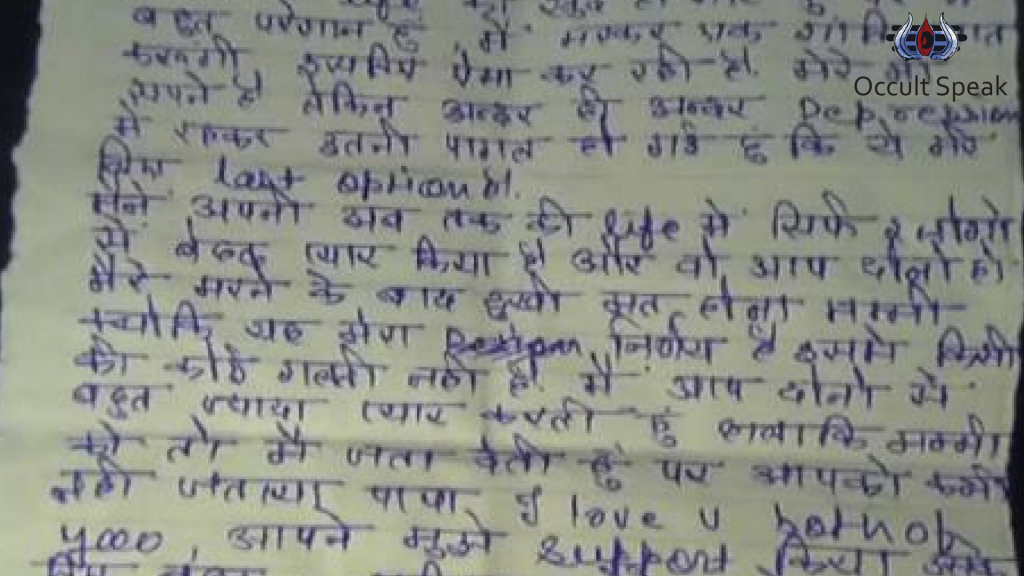 life
बहुत परेशान हूं, मैं मरकर एक
करूंगी, इसलिए ऐसा कर रही हो. मेरे
सपने है लेकिन अन्दर ही अन्दर Depression
में रहकर इतनी पागल हो गई हूं कि ये मेरे
लिए last option है.
मैंने अपनी अब तक की life में सिर्फ 2 लोगो
से बेहद प्यार किया है और वो आप दोनो हो
मेरे मरने के बाद दुखी मत होना मम्मी
क्योकि यह मेरा निर्णय है इसमे किसी
की कोई गलती नही है. मैं आप दोनो से
बहुत ज्यादा प्यार करती हूं हालाकि मम्मी
को तो मै जता देती हूं पर आपको कभी
नही जताया पापा I love u both of
yoo, आपने मुझे support किया
Occult Speak